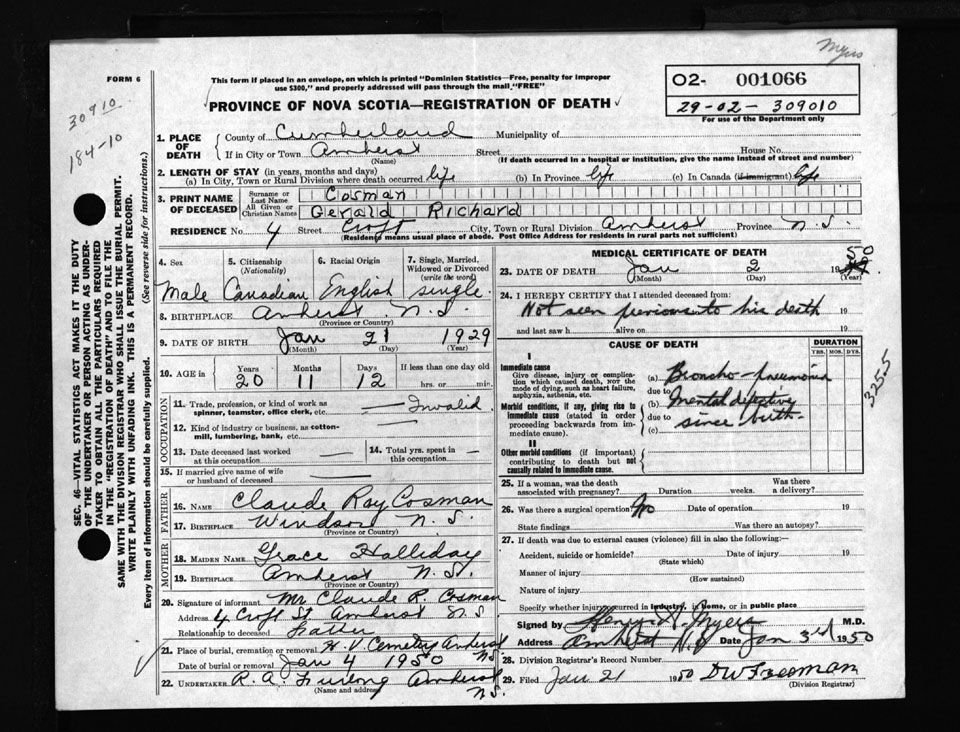 Myers
FORM 6
This form if placed in an envelope, on which is printed "Dominion Statistics—Free, penalty for improper
use $300," and properly addressed will pass through the mail "FREE"
PROVINCE OF NOVA SCOTIA—REGISTRATION OF DEATH
02- 001066
29-02-309010
For use of the Department only
30910
184-10
SEC. 46—VITAL STATISTICS ACT MAKES IT THE DUTY
OF THE UNDERTAKER OR PERSON ACTING AS UNDER-
TAKER TO OBTAIN ALL THE PARTICULARS REQUIRED
IN THE "REGISTRATION OF DEATH" AND TO FILE THE
SAME WITH THE DIVISION REGISTRAR WHO SHALL ISSUE THE BURIAL PERMIT.
WRITE PLAINLY WITH UNFADING INK. THIS IS A PERMANENT RECORD.
Every item of information should be carefully supplied. (See reverse side for instructions.)
1. PLACE OF DEATH County of Cumberland Municipality of
If in City or Town Amherst Street House No.
(Name) (If death occurred in a hospital or institution, give the name instead of street and number)
2. LENGTH OF STAY (in years, months and days)
(a) In City, Town or Rural Division where death occurred life (b) In Province life (c) In Canada (if immigrant) life
3. PRINT NAME OF DECEASED Surname or Last Name Cosman
All Given or Christian Names Gerald Richard
RESIDENCE No. 4 Street Croft City, Town or Rural Division Amherst Province N.S.
(Residence means usual place of abode. Post Office Address for residents in rural parts not sufficient)
4. Sex 5. Citizenship (Nationality) 6. Racial Origin 7. Single, Married, Widowed or Divorced (write the word)
Male Canadian English single
8. BIRTHPLACE Amherst N.S.
(Province or Country)
9. DATE OF BIRTH Jan 21 1929
(Month) (Day) (Year)
10. AGE in Years Months Days If less than one day old
20 11 12 hrs. or min.
OCCUPATION
11. Trade, profession, or kind of work as
spinner, teamster, office clerk, etc. Invalid
12. Kind of industry or business, as cotton-
mill, lumbering, bank, etc.
13. Date deceased last worked at this occupation 14. Total yrs. spent in this occupation
15. If married give name of wife
or husband of deceased
FATHER
16. NAME Claude Roy Cosman
17. BIRTHPLACE Windsor N.S.
(Province or Country)
MOTHER
18. MAIDEN NAME Grace Halliday
19. BIRTHPLACE Amherst N.S.
(Province or Country)
20. Signature of informant Mr Claude R. Cosman
Address 4 Croft St. Amherst N.S
Relationship to deceased Father
21. Place of burial, cremation or removal Cemetery Amherst NS.
Date of burial or removal Jan 4 1950
22. UNDERTAKER R. A. Furlong Amherst
(Name and address) N.S.
MEDICAL CERTIFICATE OF DEATH
23. DATE OF DEATH Jan 2 1950
(Month) (Day) (Year)
24. I HEREBY CERTIFY that I attended deceased from:
Not seen previous to his death 19
and last saw h alive on 19
CAUSE OF DEATH
DURATION
YRS. MOS. DYS.
I
Immediate cause
Give disease, injury or complica-
tion which caused death, NOT the
mode of dying, such as heart failure,
asphyxia, asthenia, etc.
(a) Broncho-pneumonia
due to
Morbid conditions, if any, giving rise to
immediate cause (stated in order
proceeding backwards from im-
mediate cause).
(b) Mental defective
due to since birth
(c)
325.5
II
Other morbid conditions (if important)
contributing to death but not
causally related to immediate cause.
25. If a woman, was the death associated with pregnancy? Duration weeks. Was there a delivery?
26. Was there a surgical operation? No Date of operation 19
State findings Was there an autopsy?
27. If death was due to external causes (violence) fill in also the following:—
Accident, suicide or homicide? Date of injury 19
(State which)
Manner of injury
(How sustained)
Nature of injury
Specify whether injury occurred in industry, in home, or in public place
Signed by Henry A. Myers M.D.
Address Amherst N.S Date Jan 3rd 1950
28. Division Registrar's Record Number
29. Filed Jan 21 1950 DW Freeman
(Division Registrar)